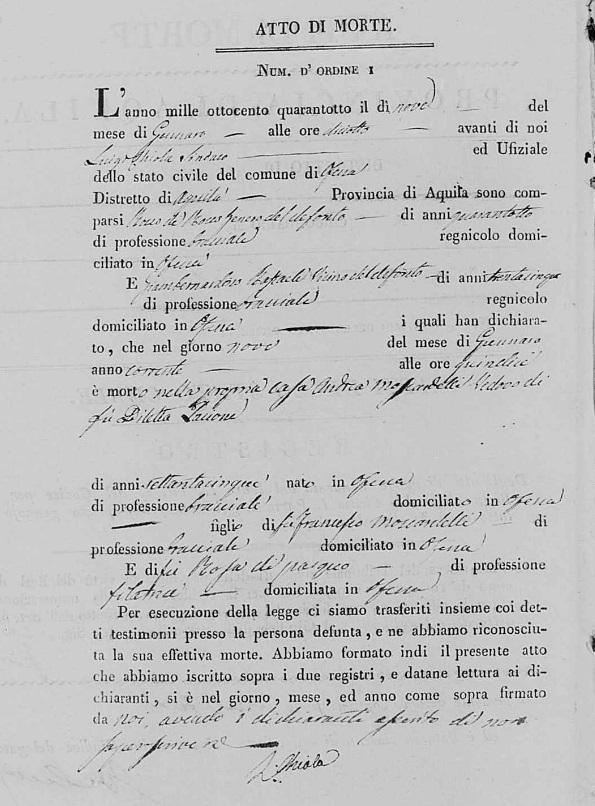 ATTO DI MORTE.
NUM. D' ORDINE 1
L'anno mille ottocento quarantotto il dì nove del
mese di Gennaro — alle ore diciotto — avanti di noi
Luigi Chiola Sindaco — ed Ufiziale
dello stato civile del comune di Ofena
Distretto di Aquila — Provincia di Aquila sono com-
parsi de Genero del defonto — di anni quarantotto
di professione bracciale regnicolo domi-
ciliato in Ofena
E Giambernardino Raffaele Vicino del defonto — di anni trentacinque
di professione bracciale regnicolo
domiciliato in Ofena — i quali han dichiara-
to, che nel giorno nove del mese di Gennaro
anno corrente — alle ore quindici
è morto nella propria casa Andrea Moscardelli Vedovo di
fù Diletta
di anni settantacinque nato in Ofena
di professione bracciale domiciliato in Ofena
— figlio di fù Francesco Moscardelli — di
professione bracciale domiciliato in Ofena
E di fù Rosa di Pasquo — di professione
filatrice — domiciliata in Ofena
Per esecuzione della legge ci siamo trasferiti insieme coi det-
ti testimonii presso la persona defunta, e ne abbiamo riconosciu-
ta la sua effettiva morte. Abbiamo formato indi il presente atto
che abbiamo iscritto sopra i due registri, e datane lettura ai di-
chiaranti, si è nel giorno, mese, ed anno come sopra firmato
da noi, avendo i dichiaranti asserito di non
saper scrivere —
L. Chiola